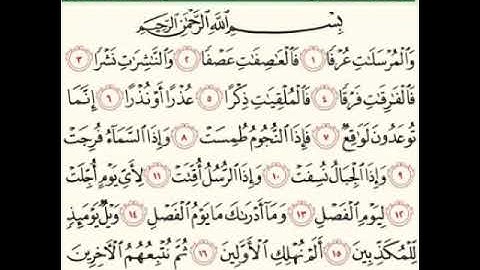 بِسْمِ اللَّهِ الرَّحْمَٰنِ الرَّحِيمِ
وَالْمُرْسَلَاتِ عُرْفًا ١ فَالْعَاصِفَاتِ عَصْفًا ٢ وَالنَّاشِرَاتِ نَشْرًا ٣
فَالْفَارِقَاتِ فَرْقًا ٤ فَالْمُلْقِيَاتِ ذِكْرًا ٥ عُذْرًا أَوْ نُذْرًا ٦ إِنَّمَا
تُوعَدُونَ لَوَاقِعٌ ٧ فَإِذَا النُّجُومُ طُمِسَتْ ٨ وَإِذَا السَّمَاءُ فُرِجَتْ
٩ وَإِذَا الْجِبَالُ نُسِفَتْ ١٠ وَإِذَا الرُّسُلُ أُقِّتَتْ ١١ لِأَيِّ يَوْمٍ أُجِّلَتْ
١٢ لِيَوْمِ الْفَصْلِ ١٣ وَمَا أَدْرَاكَ مَا يَوْمُ الْفَصْلِ ١٤ وَيْلٌ يَوْمَئِذٍ
لِّلْمُكَذِّبِينَ ١٥ أَلَمْ نُهْلِكِ الْأَوَّلِينَ ١٦ ثُمَّ نُتْبِعُهُمُ الْآخِرِينَ